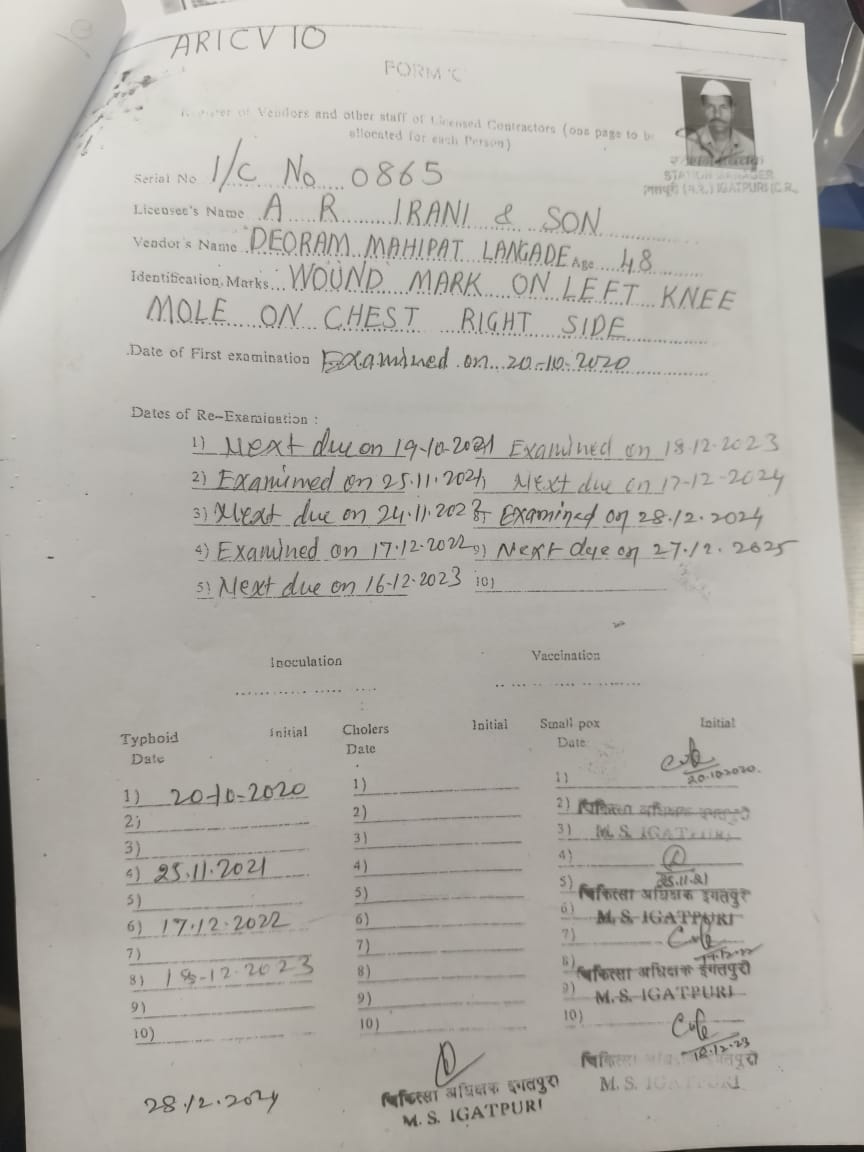 ARICV 10
FORM 'C
of Vendors and other staff of Licensed Contractors (one page to be
allocated for each Person)
STATION MANAGER
(म.रे.) IGATPURI (C.R.
Serial No I/C No 0865
Licensee's Name A R IRANI & SON
Vendor's Name DEORAM MAHIPAT LANGADE Age 48
Identification Marks WOUND MARK ON LEFT KNEE
MOLE ON CHEST RIGHT SIDE
Date of First examination Examined on 20-10-2020
Dates of Re-Examination :
1) Next due on 19-10-2021 Examined on 18-12-2023
2) Examined on 25.11.2021 Next due on 17-12-2024
3) Next due on 24.11.202 8) Examined on 28.12.2024
4) Examined on 17.12.2022 9) Next due on 27.12.2025
5) Next due on 16-12-2023 10)
Inoculation Vaccination
Typhoid Initial Cholers Initial Small pox Initial
Date Date Date
1) 20-10-2020 1) 1) 20.10.2020.
2) 2) 2) चिकित्सा अधिक्षक इगतपुरी
3) 3) 3) M. S. IGATPURI
4) 25.11.2021 4) 4)
5) 5) 5) 25.11.21
चिकित्सा अधिक्षक इगतपुरी
6) 17.12.2022 6) 6) M. S. IGATPURI
7) 7) 7)
8) 18-12-2023 8) 8) चिकित्सा अधिक्षक इगतपुरी
9) 9) 9) M. S. IGATPURI
10) 10) 10)
18.12.23
चिकित्सा इगतपुरी
M. S. IGATPURI
28.12.2024
चिकित्सा अधिक्षक इगतपुरी
M. S. IGATPURI